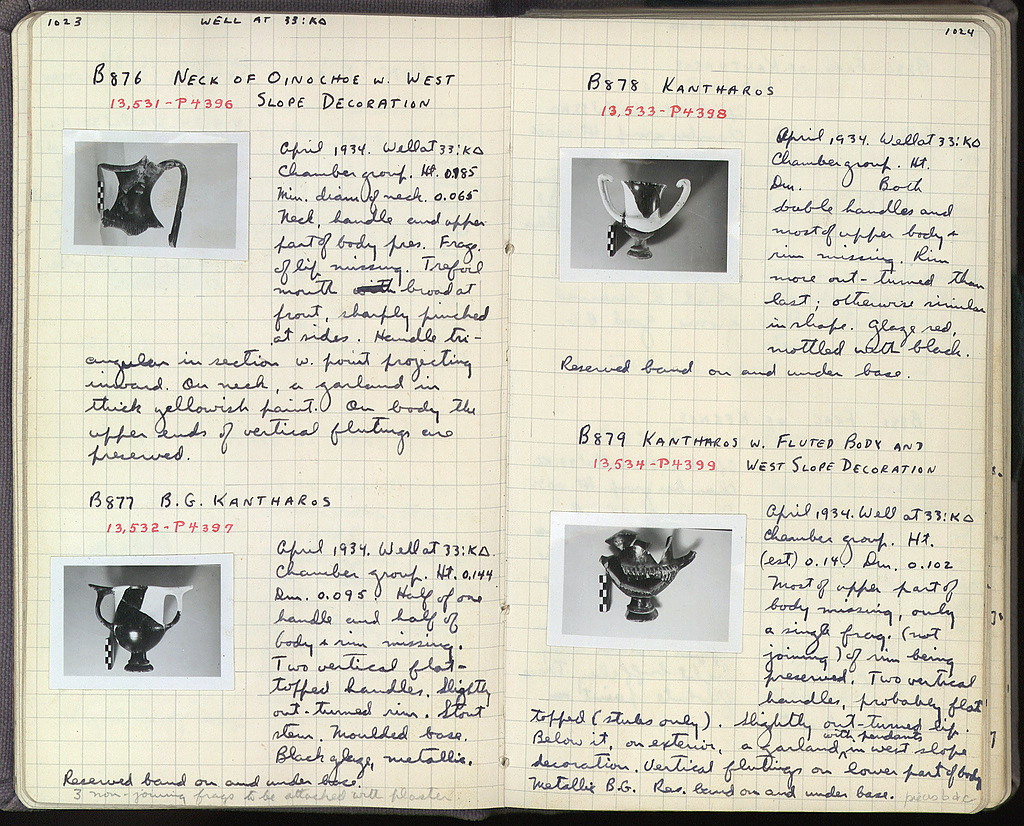 1023
WELL AT 33:ΚΔ
B876 NECK OF OINOCHOE W. WEST
13,531-P4396 SLOPE DECORATION
April 1934. Well at 33:ΚΔ
Chamber group. Ht. 0.085
Min. diam of neck. 0.065
Neck, handle and upper
part of body pres. Frag.
of lip missing. Trefoil
mouth broad at
front, sharply pinched
at sides. Handle tri-
angular in section w. point projecting
inward. On neck, a garland in
thick yellowish paint. On body the
upper ends of vertical flutings are
preserved.
B877 B.G. KANTHAROS
13,532-P4397
April 1934. Well at 33:ΚΔ.
Chamber group. Ht. 0.144
Dm. 0.095 Half of one
handle and half of
body + rim missing.
Two vertical flat-
topped handles. Slightly
out-turned rim. Stout
stem. Moulded base.
Black glaze, metallic.
Reserved band on and under base.
3 non-joining frags to be attached with plaster
1024
B878 KANTHAROS
13,533-P4398
April 1934. Well at 33:ΚΔ
Chamber group. Ht.
Dm. Both
double handles and
most of upper body +
rim missing. Rim
more out-turned than
last; otherwise similar
in shape. Glaze red,
mottled with black.
Reserved band on and under base.
B879 KANTHAROS W. FLUTED BODY AND
13,534-P4399 WEST SLOPE DECORATION
April 1934. Well at 33:ΚΔ
Chamber group. Ht.
(est) 0.14 Dm. 0.102
Most of upper part of
body missing, only
a single frag. (not
joining) of rim being
preserved. Two vertical
handles, probably flat
topped (stubs only). Slightly out-turned lip.
Below it, on exterior, a garland with pendants in west slope
decoration. Vertical flutings on lower part of body
Metallic B.G. Res. band on and under base.